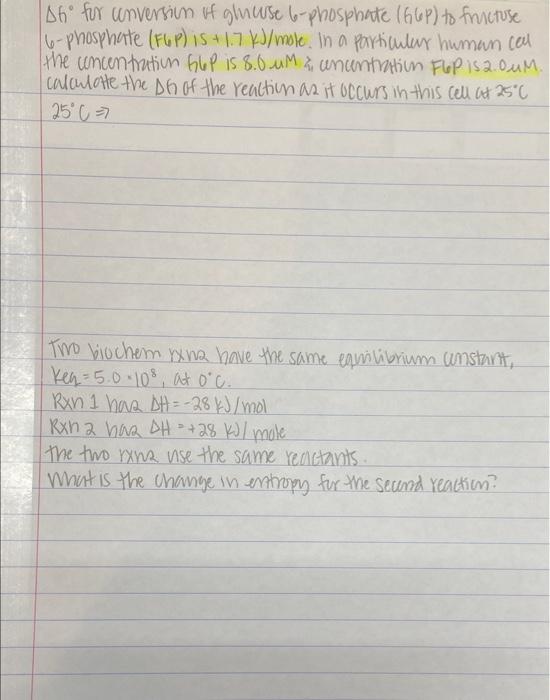 ΔG° for conversion of glucose 6-phosphate (G6P) to fructose
6-phosphate (F6P) is +1.7 kJ/mole. In a particular human cell
the concentration G6P is 8.0 uM & concentration F6P is 2.0 uM.
calculate the ΔG of the reaction as it occurs in this cell at 25°C
25°C =>
Two biochem rxns have the same equilibrium constant,
Keq = 5.0 · 10⁸, at 0°C.
Rxn 1 has ΔH = -28 kJ/mol
Rxn 2 has ΔH = +28 kJ/mole
the two rxns use the same reactants.
What is the change in entropy for the second reaction?